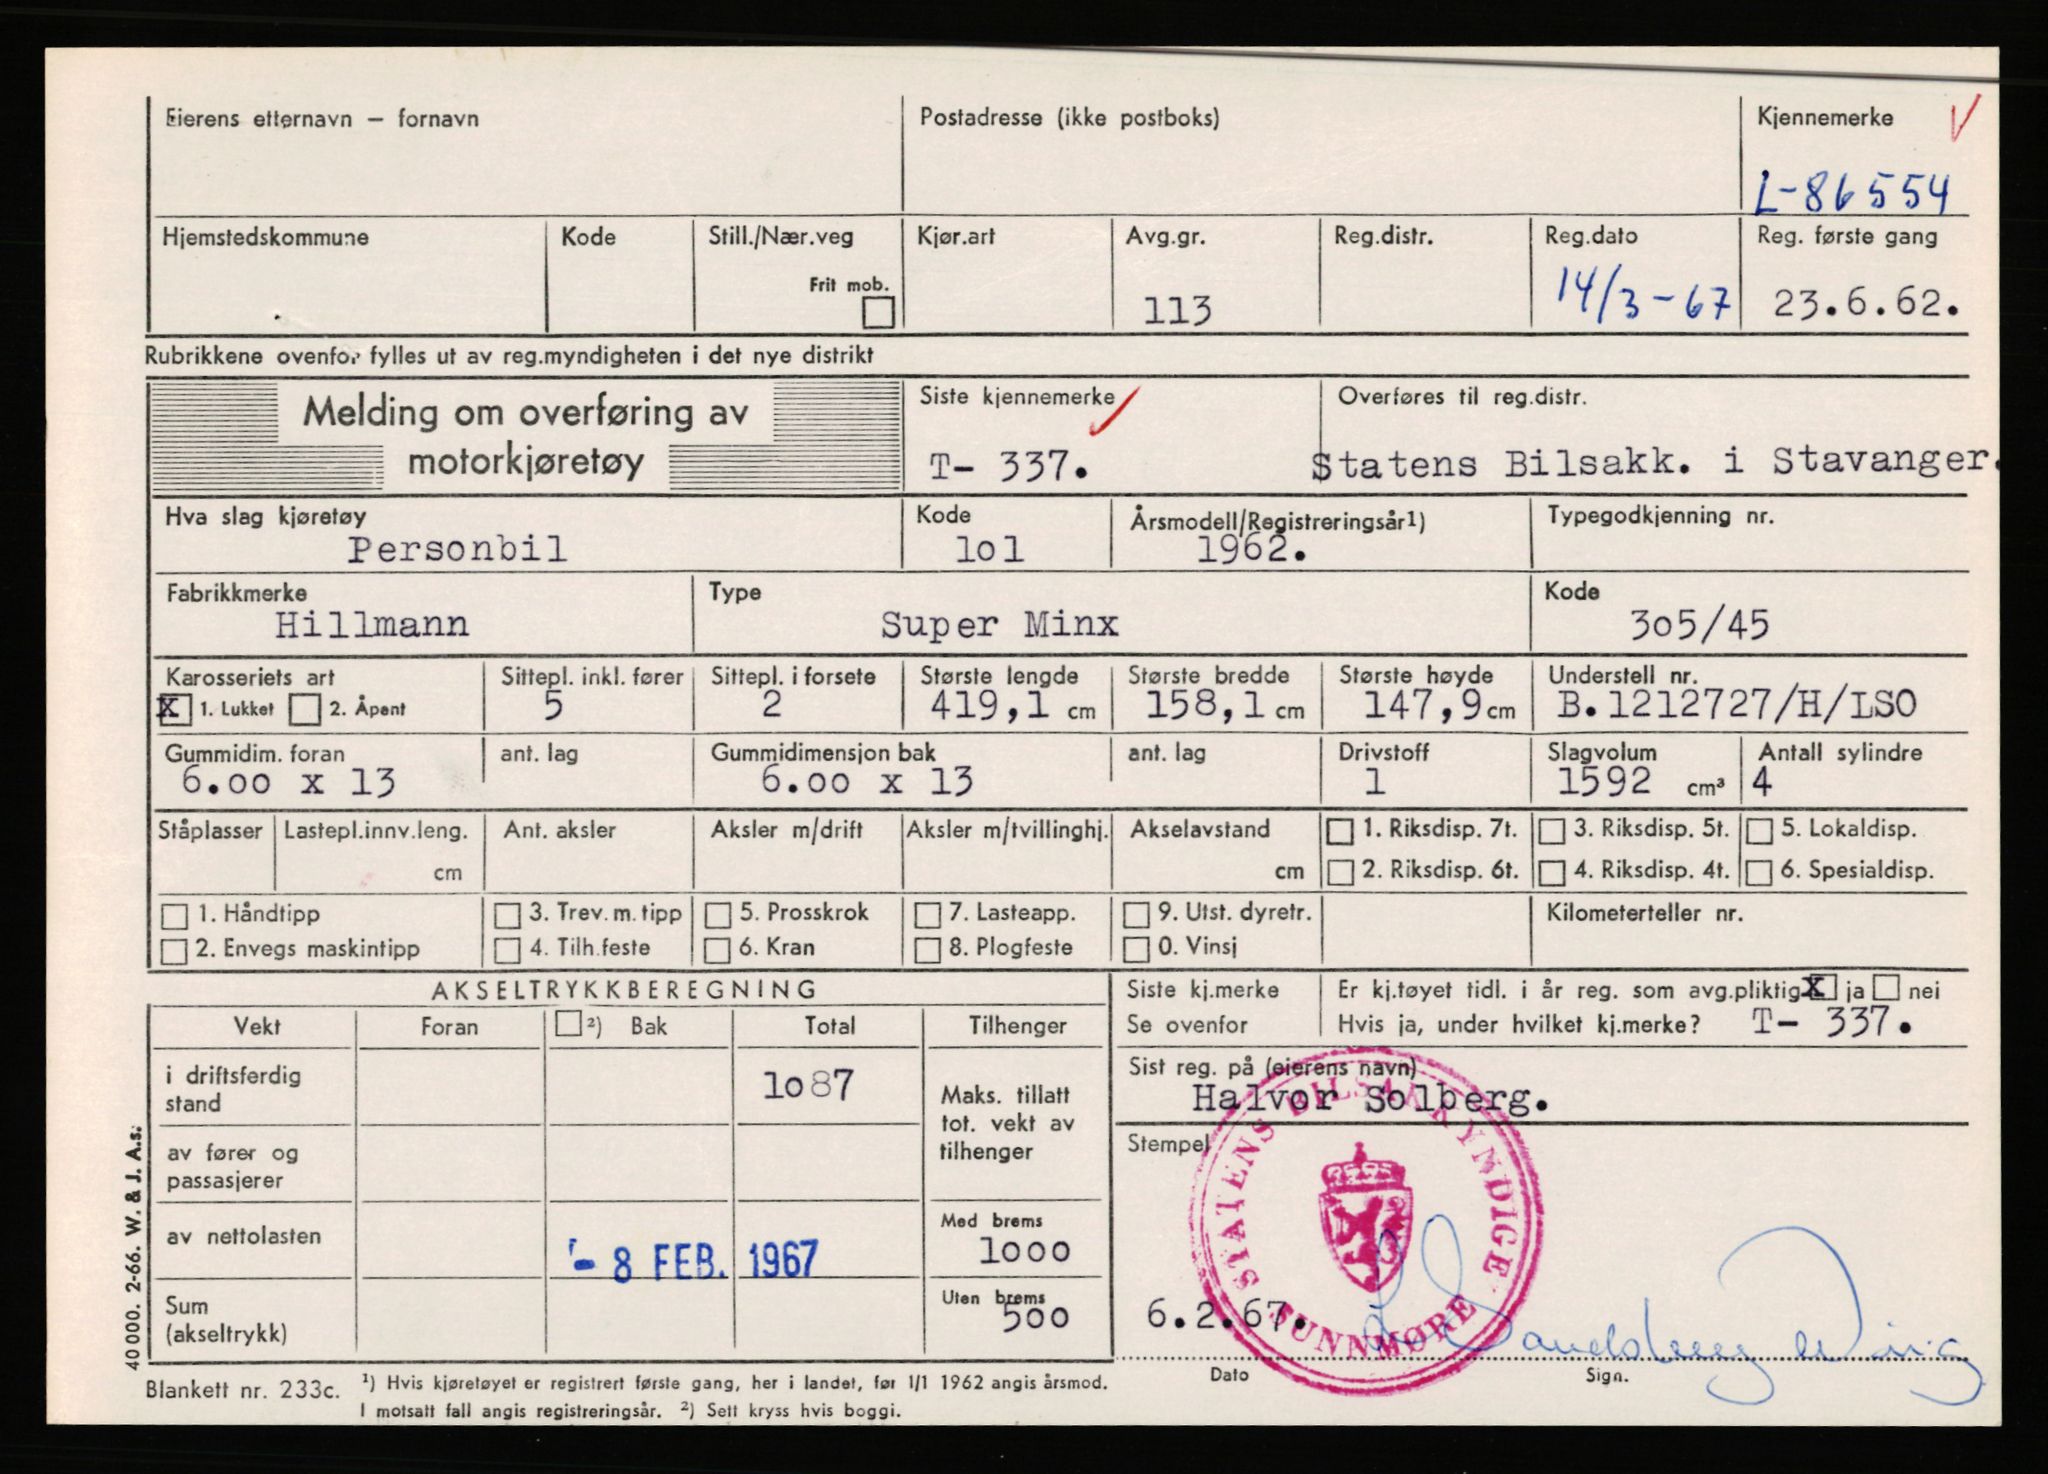 Eierens etternavn – fornavn
Postadresse (ikke postboks)
Kjennemerke
L-86554
Hjemstedskommune
Kode
Still./Nær.veg
Frit mob.
Kjør.art
Avg.gr.
113
Reg.distr.
Reg.dato
14/3-67
Reg. første gang
23.6.62.
Rubrikkene ovenfor fylles ut av reg.myndigheten i det nye distrikt
Melding om overføring av
motorkjøretøy
Siste kjennemerke
T- 337.
Overføres til reg.distr.
Statens Bilsakk. i Stavanger.
Hva slag kjøretøy
Personbil
Kode
lol
Årsmodell/Registreringsår1)
1962.
Typegodkjenning nr.
Fabrikkmerke
Hillmann
Type
Super Minx
Kode
305/45
Karosseriets art
X 1. Lukket 2. Åpent
Sittepl. inkl. fører
5
Sittepl. i forsete
2
Største lengde
419,1 cm
Største bredde
158,1 cm
Største høyde
147,9 cm
Understell nr.
B.1212727/H/LSO
Gummidim. foran
6.00 x 13
ant. lag
Gummidimensjon bak
6.00 x 13
ant. lag
Drivstoff
1
Slagvolum
1592 cm³
Antall sylindre
4
Ståplasser
Lastepl.innv.leng.
cm
Ant. aksler
Aksler m/drift
Aksler m/tvillinghj.
Akselavstand
cm
1. Riksdisp. 7t.
2. Riksdisp. 6t.
3. Riksdisp. 5t.
4. Riksdisp. 4t.
5. Lokaldisp.
6. Spesialdisp.
1. Håndtipp
2. Envegs maskintipp
3. Trev. m. tipp
4. Tilh.feste
5. Prosskrok
6. Kran
7. Lasteapp.
8. Plogfeste
9. Utst. dyretr.
0. Vinsj
Kilometerteller nr.
AKSELTRYKKBEREGNING
Vekt
Foran
2) Bak
Total
Tilhenger
i driftsferdig
stand
1087
av fører og
passasjerer
av nettolasten
- 8 FEB. 1967
Sum
(akseltrykk)
Maks. tillatt
tot. vekt av
tilhenger
Med brems
1000
Uten brems
500
Siste kj.merke
Se ovenfor
Er kj.tøyet tidl. i år reg. som avg.pliktig X ja nei
Hvis ja, under hvilket kj.merke? T- 337.
Sist reg. på (eierens navn)
Halvor Solberg.
Stempel
STATENS BILSAKKYNDIGE
SUNNMØRE
6.2.67.
Dato
Sign.
40 000. 2-66. W. & J. A.s.
Blankett nr. 233c.
1) Hvis kjøretøyet er registrert første gang, her i landet, før 1/1 1962 angis årsmod.
I motsatt fall angis registreringsår. 2) Sett kryss hvis boggi.